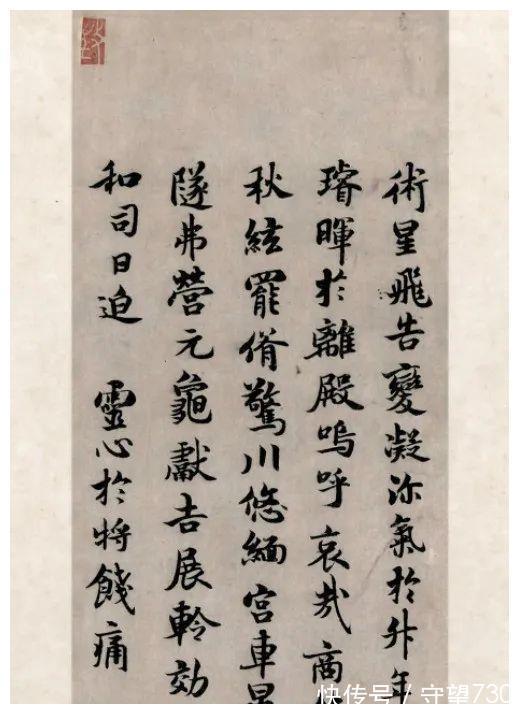 術星飛告變凝沴氣於升年
璿暉於離殿嗚呼哀哉商
秋絃罷佾驚川悠緬宮車
隧弗營元龜獻吉展軨効
和司日迫 靈心於將餞痛
快传号 / 守望730